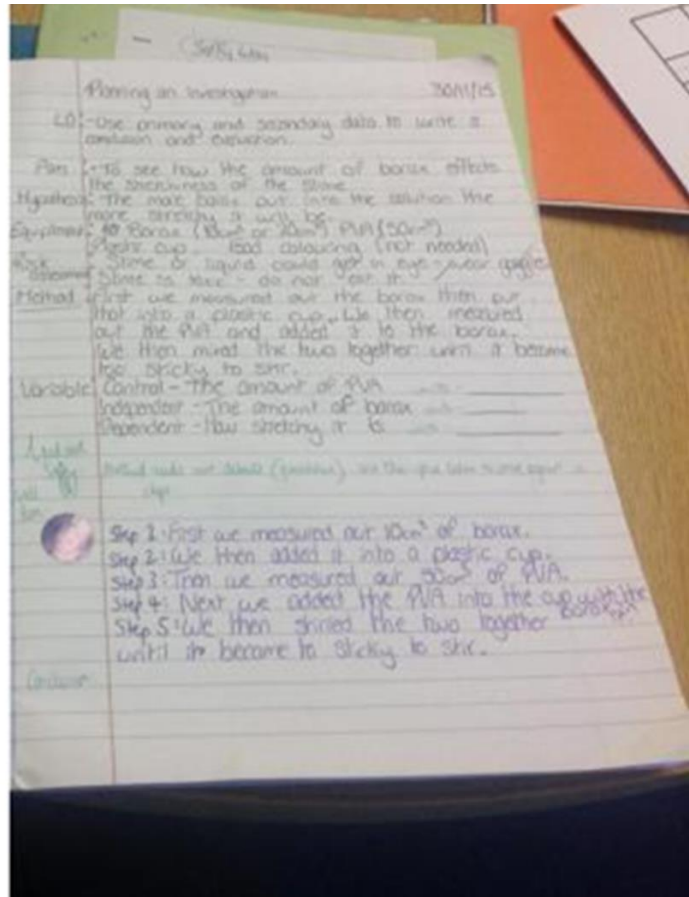 Planning an investigation 30/11/15
LO:-Use primary and secondary data to write a
conclusion and evaluation.
Aim :-To see how the amount of borax effects
the stretchiness of the slime.
Hypothesis: The more borax put into the solution the
more stretchy it will be.
Equipment: Borax (10cm³ or 20cm³) PVA (50cm³)
Plastic cup food colouring (not needed)
Slime or liquid could get in eye - wear goggles
Slime is toxic - do not eat it
Method: First we measured out the borax then put
that into a plastic cup. We then measured
out the PVA and added it to the borax.
We then mixed the two together until it became
too sticky to stir.
Variable: Control - The amount of PVA
Independent - The amount of borax
Dependent - How stretchy it is
Method needs more details
Step 1: First we measured out 10cm³ of borax.
Step 2: We then added it into a plastic cup.
Step 3: Then we measured out 50cm³ of PVA.
Step 4: Next we added the PVA into the cup with the
borax in
Step 5: We then stirred the two together
until it became to sticky to stir.